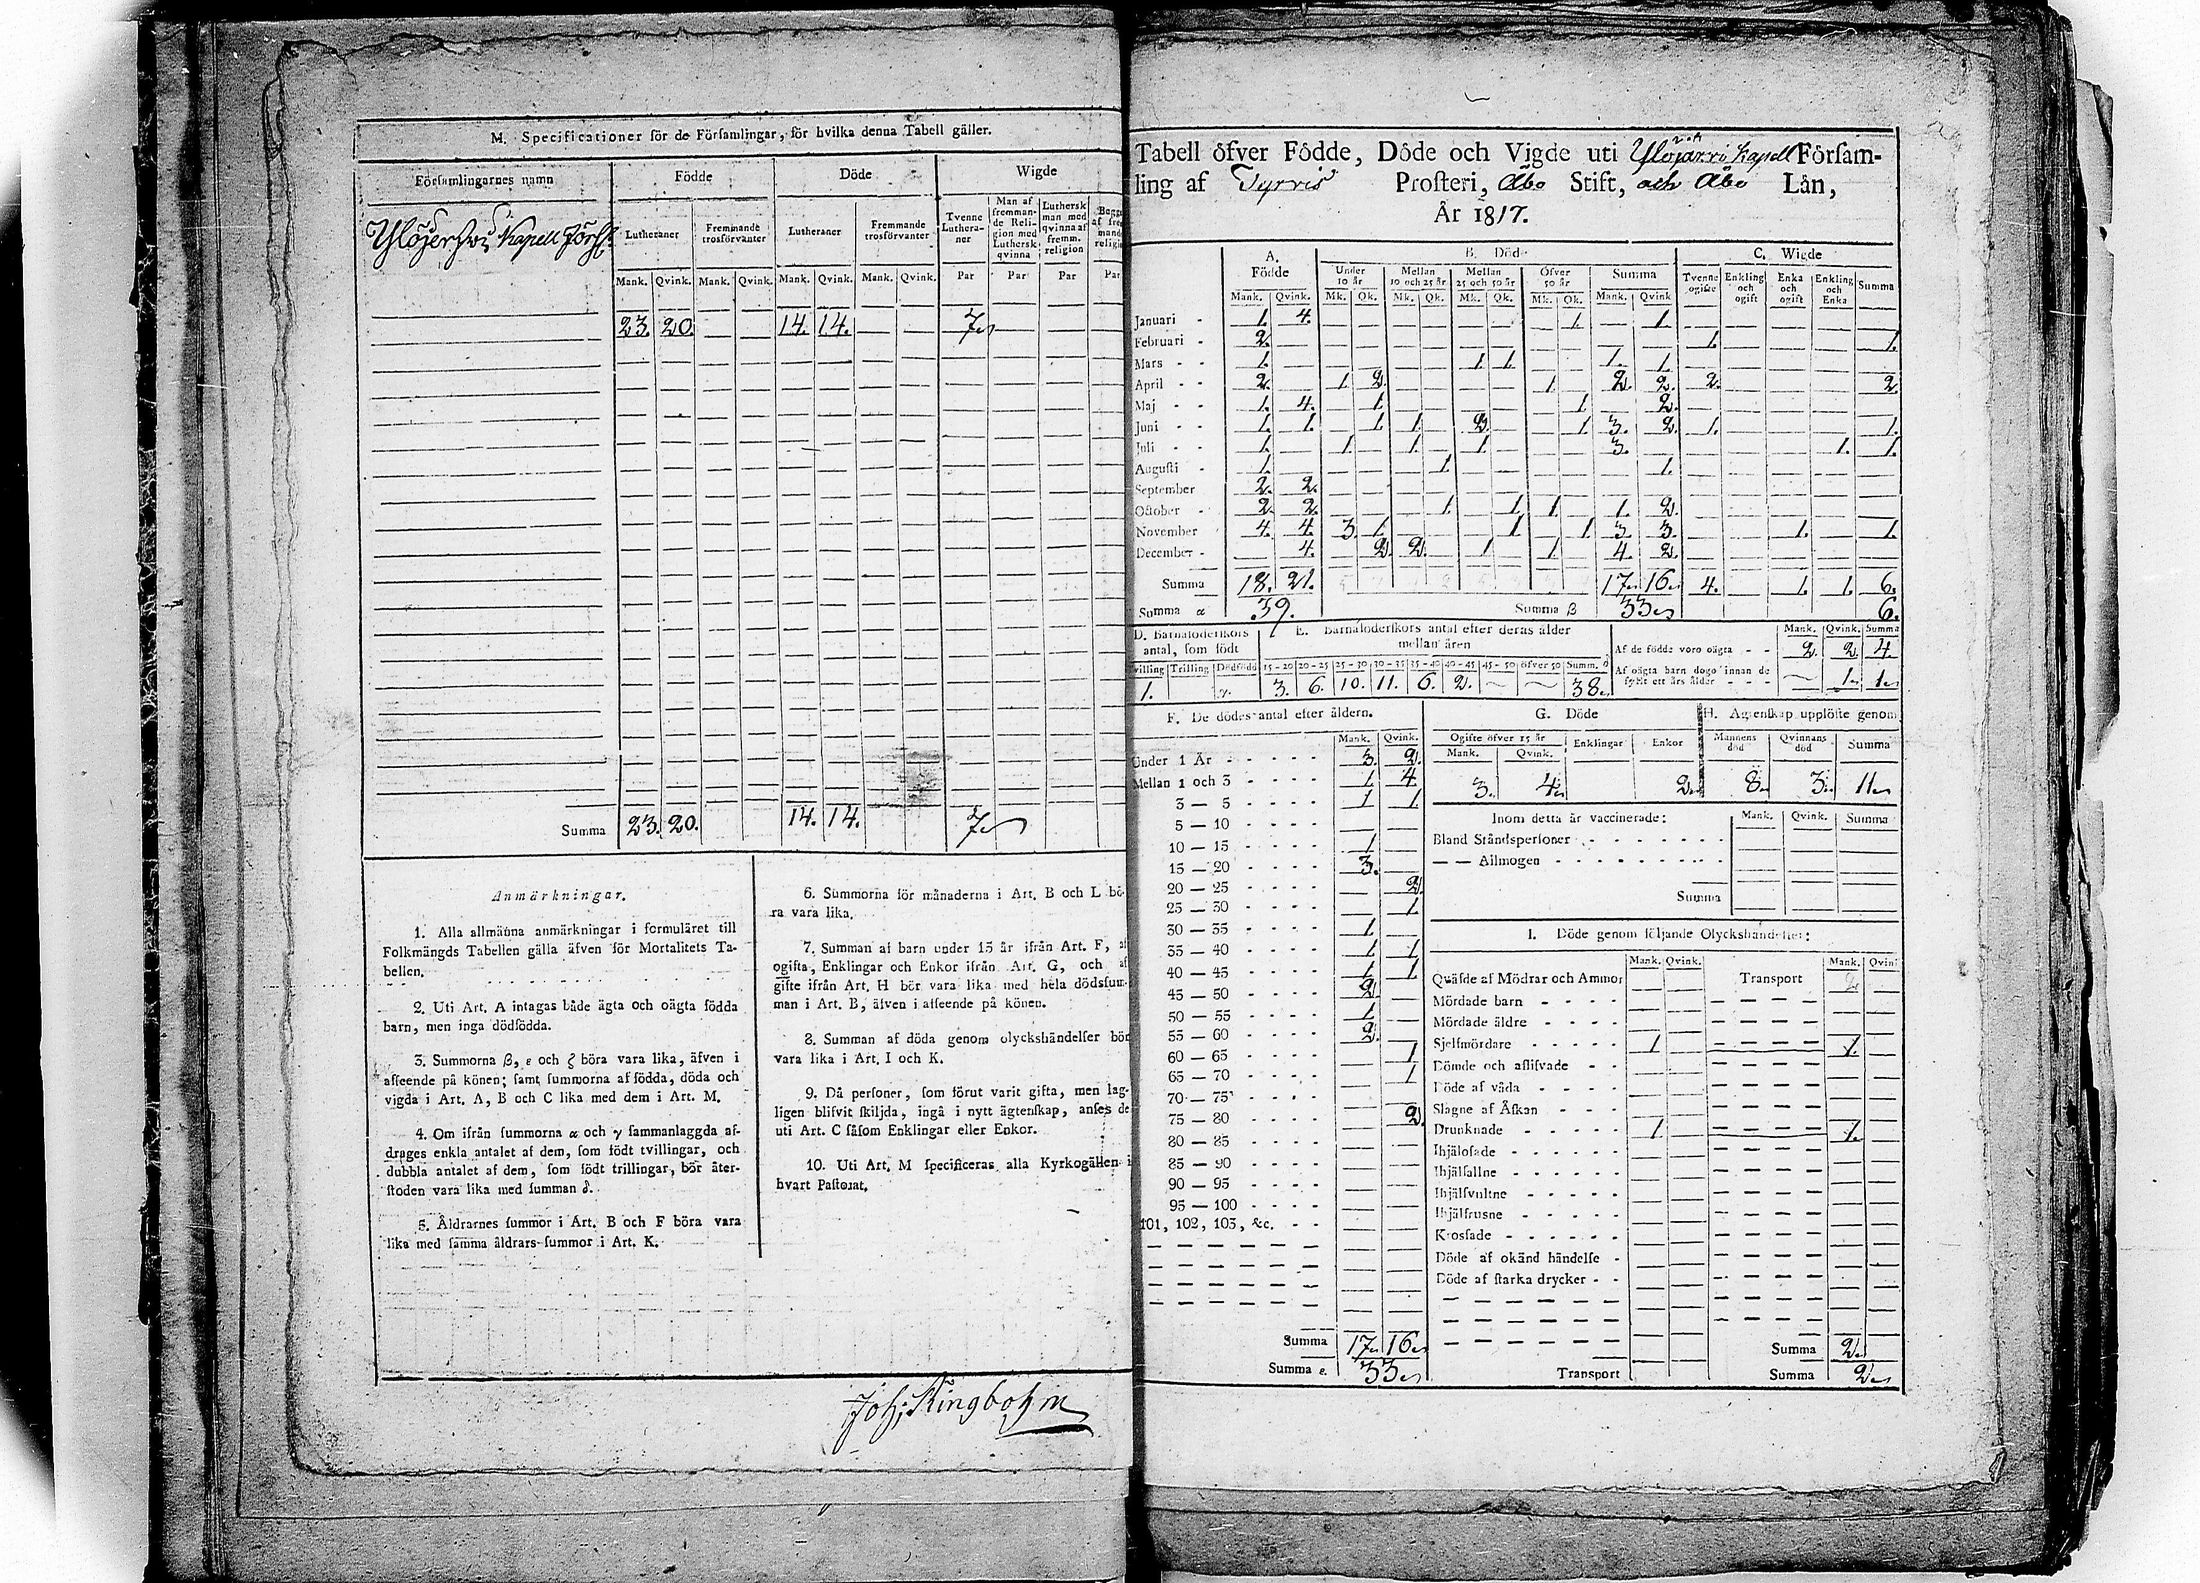 M. Specificationer för de Församlingar, för hvilka denna Tabell gäller.
Församlingarnes namn Födde Döde Wigde
Lutheraner Fremmande trosförvanter Lutheraner Fremmande trosförvanter Tvenne Lutheraner Man af fremmande Religion med Luthersk qvinna Luthersk man med qvinna af fremm. religion
Mank. Qvink. Mank. Qvink. Mank. Qvink. Mank. Qvink. Par Par Par Par
Kapell Förs.
23. 20. — — 14. 14. — — 7
Summa 23. 20. 14. 14. 7
Anmärkningar.
1. Alla allmänna anmärkningar i formuläret till
Folkmängds Tabellen gälla äfven för Mortalitets Ta-
bellen.
2. Uti Art. A intagas både ägta och oägta födda
barn, men inga dödfödda.
3. Summorna β, ε och ζ böra vara lika, äfven i
afseende på könen; samt summorna af födda, döda och
vigda i Art. A, B och C lika med dem i Art. M.
4. Om ifrån summorna α och γ sammanlaggda af-
drages enkla antalet af dem, som födt tvillingar, och
dubbla antalet af dem, som födt trillingar, bör åter-
stoden vara lika med summan δ.
5. Åldrarnes summor i Art. B och F böra vara
lika med samma åldrars summor i Art. K.
6. Summorna för månaderna i Art. B och L bö-
ra vara lika.
7. Summan af barn under 15 år ifrån Art. F, af
ogifta, Enklingar och Enkor ifrån Art. G, och af
gifte ifrån Art. H bör vara lika med hela dödssum-
man i Art. B, äfven i afseende på könen.
8. Summan af döda genom olyckshändelser bör
vara lika i Art. I och K.
9. Då personer, som förut varit gifta, men lag-
ligen blifvit skiljda, ingå i nytt ägtenskap, anses de
uti Art. C såsom Enklingar eller Enkor.
10. Uti Art. M specificeras alla Kyrkogällen i
hvart Pastorat.
Joh: Ringbohm
Tabell öfver Födde, Döde och Vigde uti Ylöjärvi Kapell Försam-
ling af Tyrvis Prosteri, Åbo Stift, och Åbo Län,
År 1817.
A. Födde B. Döde C. Wigde
Under 10 år Mellan 10 och 25 år Mellan 25 och 50 år Öfver 50 år Summa Tvenne ogifte Enkling och ogift Enka och ogift Enkling och Enka Summa
Mank. Qvink. Mk. Qk. Mk. Qk. Mk. Qk. Mk. Qk. Mank. Qvink
Januari 1. 4. 1. — 1.
Februari 2. 1. 1.
Mars 1. 1 1. 1. 1.
April 2. 1. 2. 1. 2. 2. 2. 2
Maj 1. 4. 1. 1. 2.
Juni 1. 1. 1. 1. 2. 1. 3. 2. 1. 1.
Juli 1. 1. 1. 1. 3. 1. 1.
Augusti 1. 1. 1.
September 2. 2.
October 2. 2. 1. 1. 1. 1. 2.
November 4. 4. 3. 1. 1 1. 3. 3. 1. 1.
December 4. 2. 2. 1 1. 4. 2.
Summa 18. 21. 17 16 4. 1. 1. 6.
Summa α 39. Summa β 33 6.
D. Barnaföderskors antal, som födt
E. Barnaföderskors antal efter deras ålder mellan åren
Mank. Qvink. Summa
Tvilling Trilling Dödfödd 15-20 20-25 25-30 30-35 35-40 40-45 45-50 öfver 50 Summ. δ
Af de födde voro oägta 2. 2. 4.
1. 3. 6. 10. 11. 6. 2. 38
Af oägta barn dogo innan de fyllt ett års ålder — 1 1
F. De dödes antal efter åldern.
Mank. Qvink.
Under 1 År 3. 2.
Mellan 1 och 3 1 4
3 — 5 1 1
5 — 10
10 — 15 1
15 — 20 3.
20 — 25 2.
25 — 30 1.
30 — 35 1
35 — 40 1 1
40 — 45 1 1
45 — 50 2.
50 — 55 1
55 — 60 2.
60 — 65 1
65 — 70 1
70 — 75
75 — 80 2.
80 — 85
85 — 90
90 — 95
95 — 100
101, 102, 103, &c.
Summa 17 16
Summa ε. 33
G. Döde
Ogifte öfver 15 år Enklingar Enkor
Mank. Qvink.
3. 4 2
H. Ägtenskap upplöste genom
Mannens död Qvinnans död Summa
8 3 11
Inom detta år vaccinerade: Mank. Qvink. Summa
Bland Ståndspersoner
— — Allmogen
Summa
I. Döde genom följande Olyckshändelser:
Mank. Qvink. Mank. Qvink
Qväfde af Mödrar och Ammor Transport
Mördade barn
Mördade äldre
Sjelfmördare 1 1.
Dömde och aflifvade
Döde af våda
Slagne af Åskan
Drunknade 1 1.
Ihjälosade
Ihjälfallne
Ihjälsvultne
Ihjälfrusne
Krossade
Döde af okänd händelse
Döde af starka drycker
Summa 2
Transport Summa 2